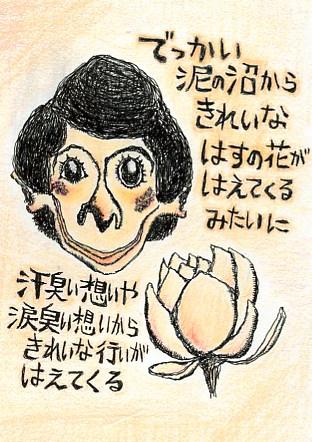 でっかい
泥の沼から
きれいな
はすの花が
はえてくる
みたいに
汗臭い想いや
涙臭い想いから
きれいな行いが
はえてくる